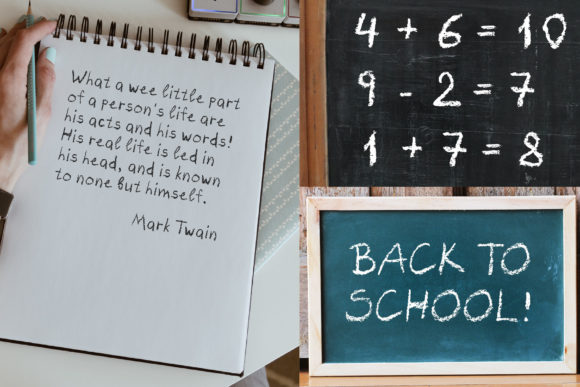 What a wee little part
of a person's life are
his acts and his words!
His real life is led in
his head, and is known
to none but himself.
Mark Twain
4 + 6 = 10
9 - 2 = 7
1 + 7 = 8
BACK TO
SCHOOL!